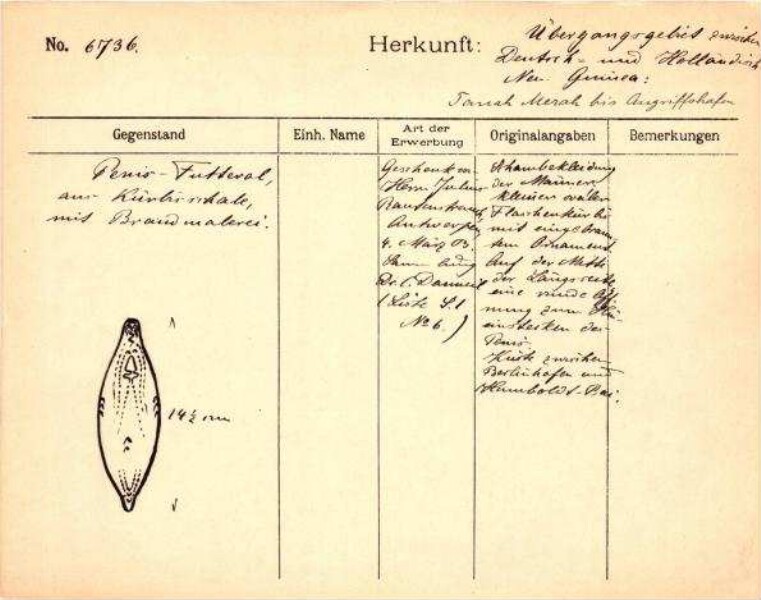 No. 6736.
Herkunft:
Übergangsgebiet zwischen
Deutsch- und Holländisch
Neu Guinea:
Tanah Merah bis Angriffshafen
Gegenstand
Einh. Name
Art der
Erwerbung
Originalangaben
Bemerkungen
Penis-Futteral,
aus Kürbisschale,
mit Brandmalerei.
14½ cm
Geschenk von
Herrn Julius
Rautenstrauch,
Antwerpen
4. März 03.
Sammlung
Dr.
(Liste S. 1
No 6.)
Schambekleidung
der Männer
kleiner ovaler
Flaschenkürbis
mit eingebrann-
tem Ornament
Auf der Mitte
der Längsseite
eine runde Öff-
nung zum
einstecken des
Penis.
Küste zwischen
Berlinhafen und
Humboldt-Bai.